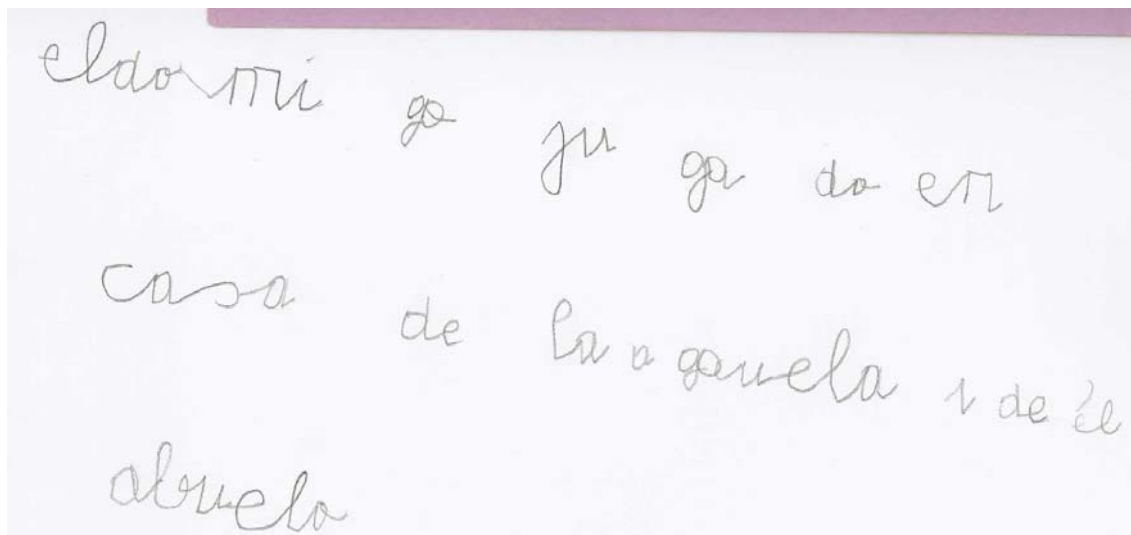 eldomi go ju ga do en
casa de la a gauela i de él
abuelo